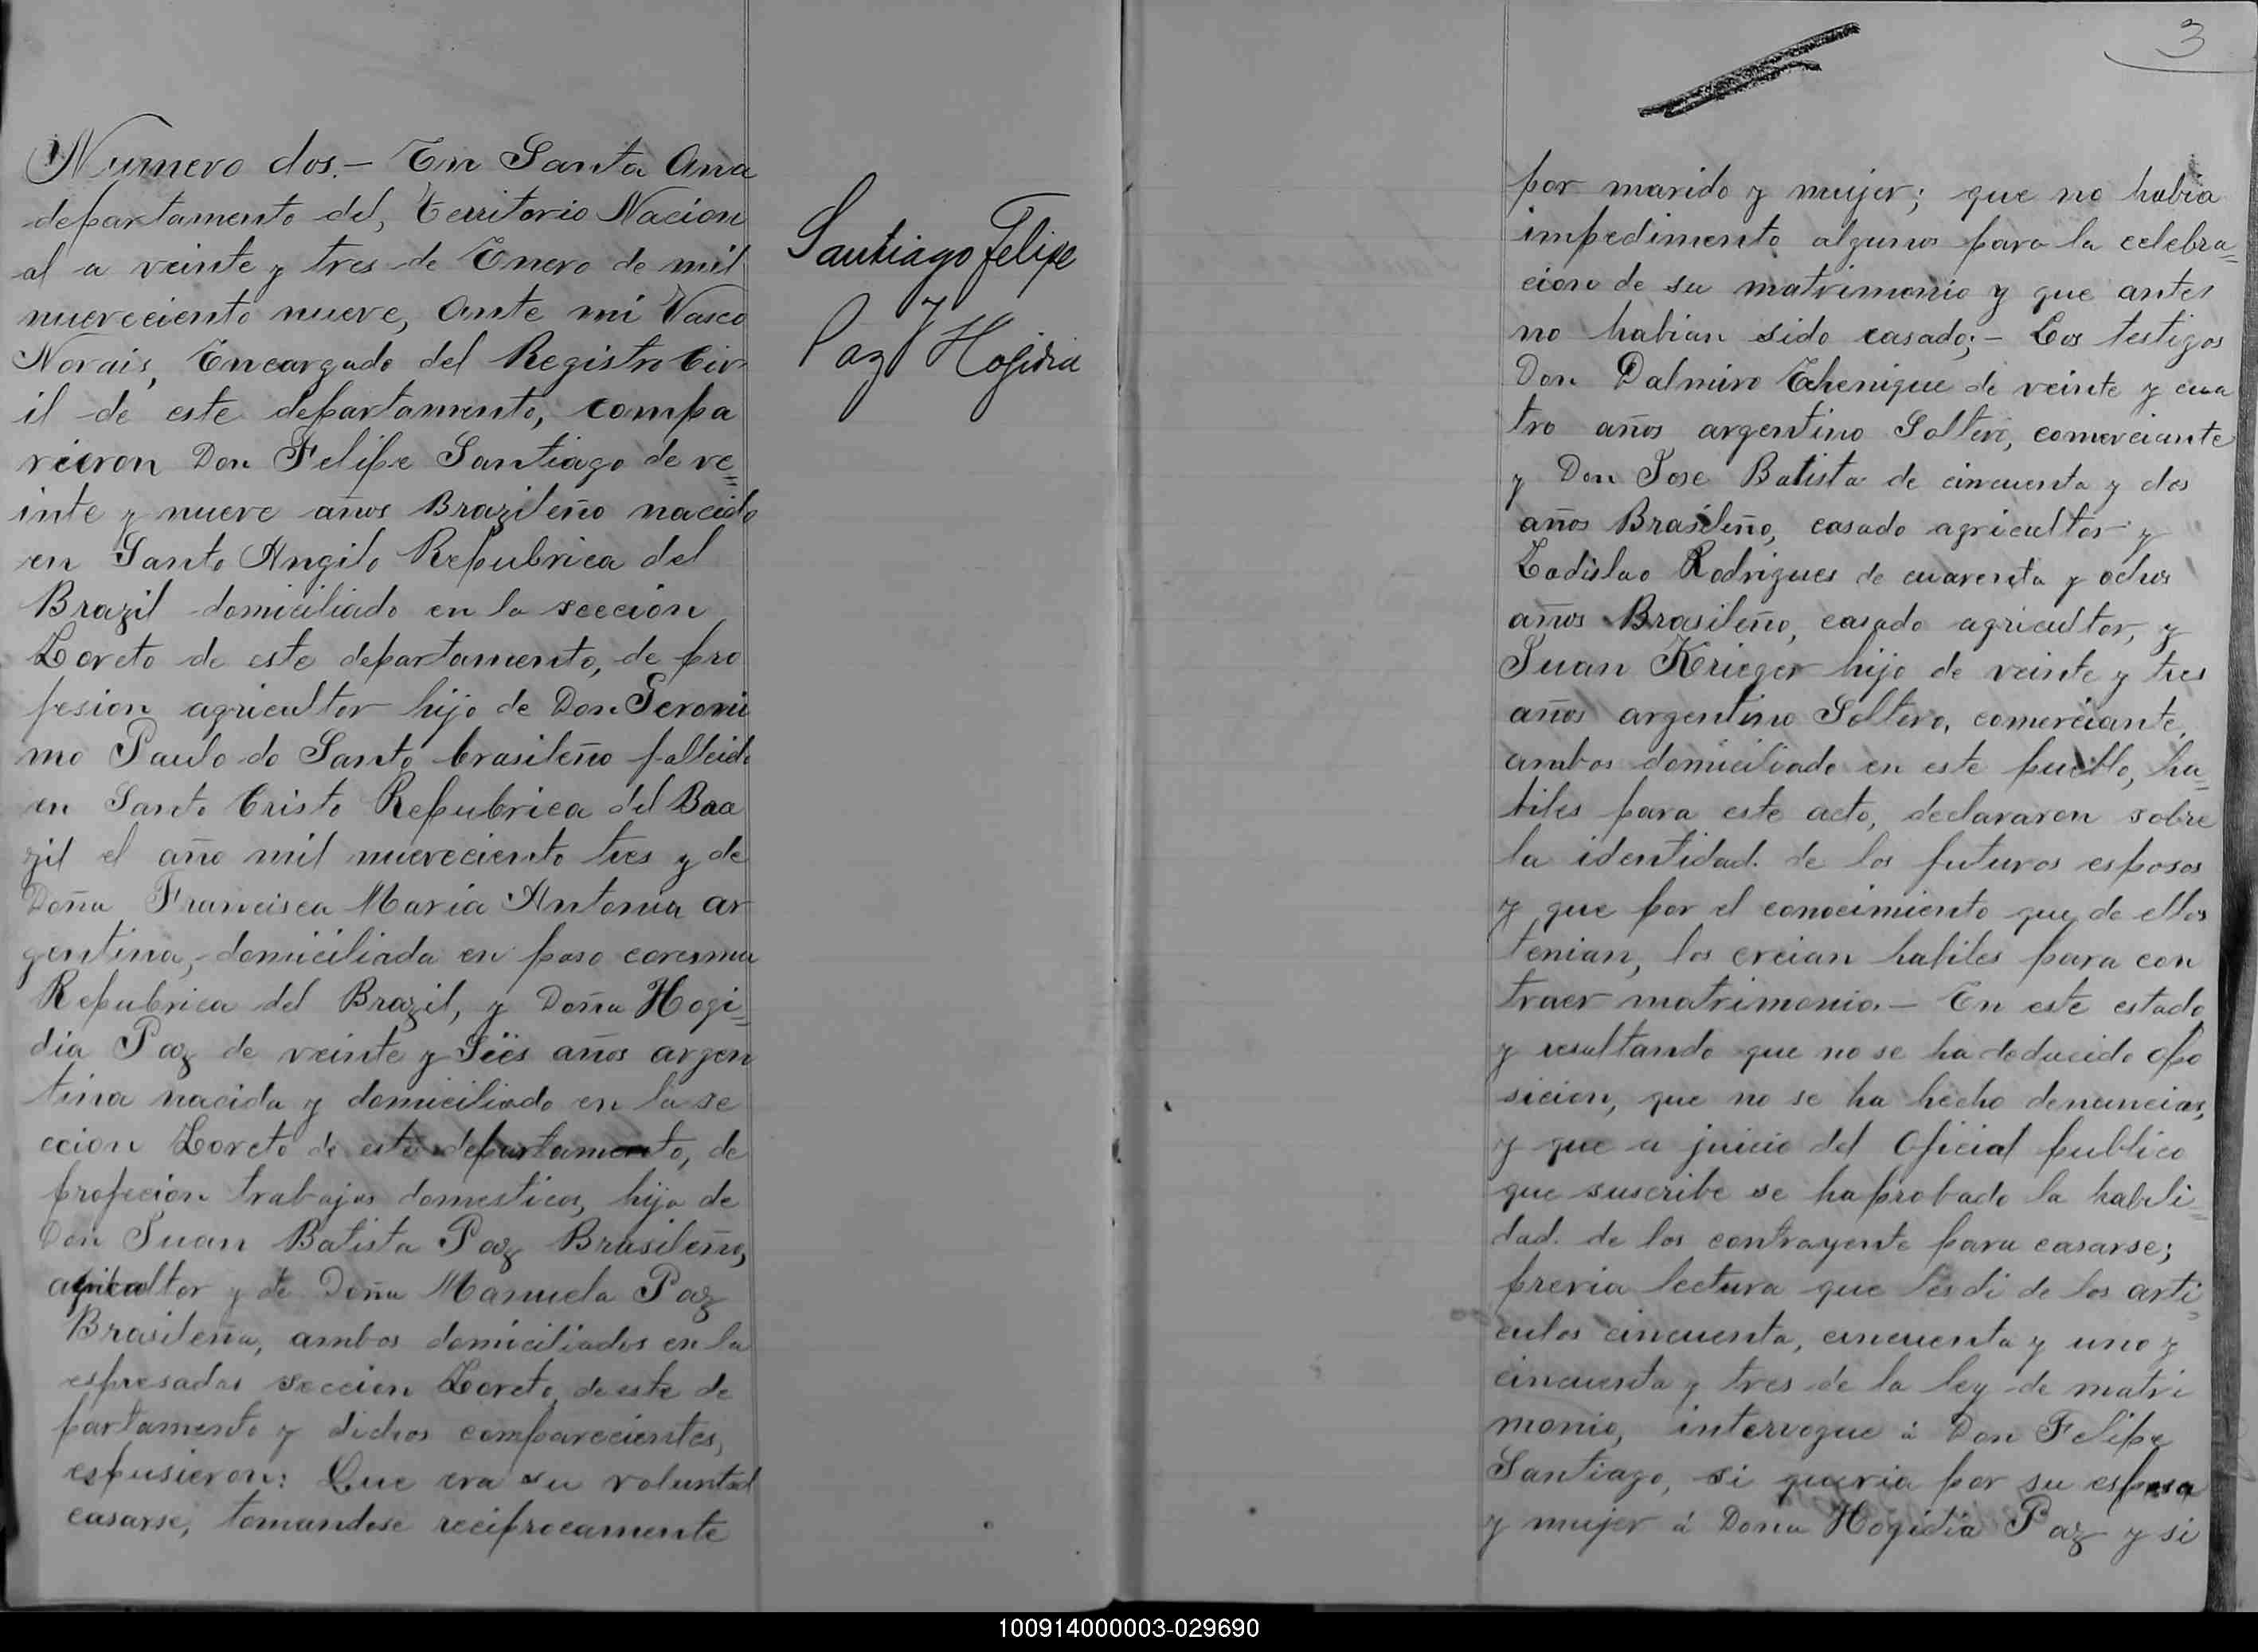 Numero dos.- En Santa Ana
departamento del, Territorio Nacion
al a veinte y tres de Enero de mil
nuereciento nueve, ante mi Vasco
Norais, Encargado del Registro Civ
il de este departamento, compa
rieron Don Felipe Santiago de ve=
inte y nueve años Brazileño nacido
en Santo Angilo Republica del
Brazil domiciliado en la seccion
Loreto de este departamento, de pro
fesion agricultor hijo de Don Geroni
mo Paulo do Santo brasileño falleido
en Santo Cristo Republica del Bra
zil el año mil nuereciento tres y de
Doña Francisca Maria Antonia ar
gentina, domiciliada en paso coresma
Republica del Brazil, y Doña Hogi=
dia Paz de veinte y Siës años argen
tina nacida y domiciliado en la se
ccion Loreto de este departamento, de
profecion trabajos domesticos, hija de
Don Juan Batista Paz Brasileño,
agricultor y de Doña Manuela Paz
Brasileña, ambos domiciliados en la
espresadas seccion Loreto de este de
partamento y dichos comparecientes,
espusieron: Que era su voluntad
casarse, tomandose reciprocamente
Santiago Felipe
y
Paz Hogidia
3
por marido y mujer; que no habia
impedimento alguno para la celebra=
cion de su matrimonio y que antes
no habian sido casado;- Los testigos
Don Dalmiro Echenique de veinte y cua
tro años argentino Soltero, comerciante
y Don Jose Batista de cincuenta y dos
años Brasileño, casado agricultor y
Ladislao Rodrigues de cuarenta y ochos
años Brasileño, casado agricultor, y
Juan Krieger hijo de veinte y tres
años argentino Soltero, comerciante,
ambos domiciliado en este pueblo, ha=
biles para este acto, declararon sobre
la identidad. de los futuros esposos
y que por el conocimiento que de ellos
tenian, los creian habiles para con
traer matrimonio.- En este estado
y resultando que no se ha deducido opo
sicion, que no se ha hecho denuncias,
y que a juicio del Oficial publico
que suscribe se ha probado la habili=
dad. de los contrayente para casarse;
previa lectura que les di de los arti=
culos cincuenta, cincuenta y uno y
cincuenta y tres de la ley de matri
monio, interrogue á Don Felipe
Santiago, si queria por su esposa
y mujer á Dona Hogidia Paz y si
100914000003-029690